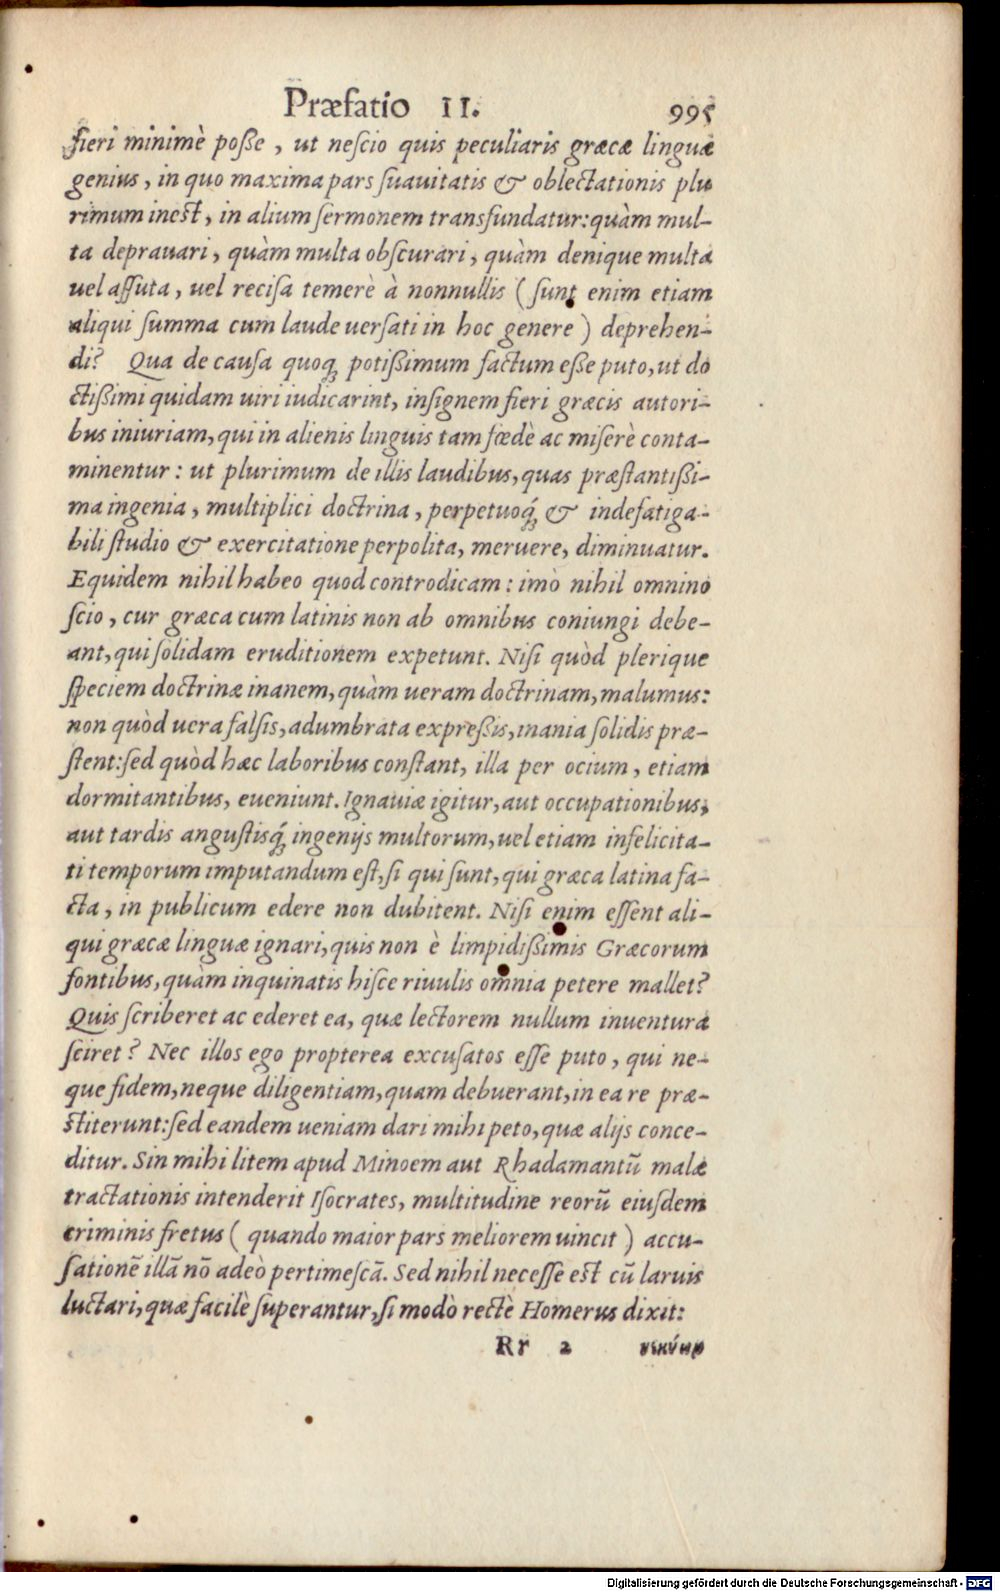 Præfatio II. 995
fieri minimè poſſe, ut neſcio quis peculiaris græcæ linguæ
genius, in quo maxima pars ſuauitatis & oblectationis plu
rimum ineſt, in alium ſermonem transfundatur: quàm mul-
ta deprauari, quàm multa obſcurari, quàm denique multa
uel aſſuta, uel reciſa temerè à nonnullis (ſunt enim etiam
aliqui ſumma cum laude uerſati in hoc genere) deprehen-
di? Qua de cauſa quoqꝫ potißimum factum eſſe puto, ut do
ctißimi quidam uiri iudicarint, inſignem fieri græcis autori-
bus iniuriam, qui in alienis linguis tam fœdè ac miſerè conta-
minentur: ut plurimum de illis laudibus, quas præſtantißi-
ma ingenia, multiplici doctrina, perpetuoq́ꝫ & indefatiga-
bili ſtudio & exercitatione perpolita, meruere, diminuatur.
Equidem nihil habeo quod controdicam: imò nihil omnino
ſcio, cur græca cum latinis non ab omnibus coniungi debe-
ant, qui ſolidam eruditionem expetunt. Niſi quòd plerique
ſpeciem doctrinæ inanem, quàm ueram doctrinam, malumus:
non quòd uera falſis, adumbrata expreßis, inania ſolidis præ-
ſtent: ſed quòd hæc laboribus conſtant, illa per ocium, etiam
dormitantibus, eueniunt. Ignauiæ igitur, aut occupationibus,
aut tardis anguſtisq́ꝫ ingenijs multorum, uel etiam infelicita-
ti temporum imputandum eſt, ſi qui ſunt, qui græca latina fa-
cta, in publicum edere non dubitent. Niſi enim eſſent ali-
qui græcæ linguæ ignari, quis non è limpidißimis Græcorum
fontibus, quàm inquinatis hiſce riuulis omnia petere mallet?
Quis ſcriberet ac ederet ea, quæ lectorem nullum inuentura
ſciret? Nec illos ego propterea excuſatos eſſe puto, qui ne-
que fidem, neque diligentiam, quam debuerant, in ea re præ-
ſtiterunt: ſed eandem ueniam dari mihi peto, quæ alijs conce-
ditur. Sin mihi litem apud Minoem aut Rhadamantū malæ
tractationis intenderit Iſocrates, multitudine reorū eiuſdem
criminis fretus (quando maior pars meliorem uincit) accu-
ſationē illā nō adeò pertimeſcā. Sed nihil neceſſe eſt cū laruis
luctari, quæ facilè ſuperantur, ſi modò rectè Homerus dixit:
Rr 2 νεκύων
Digitalisierung gefördert durch die Deutsche Forschungsgemeinschaft - DFG